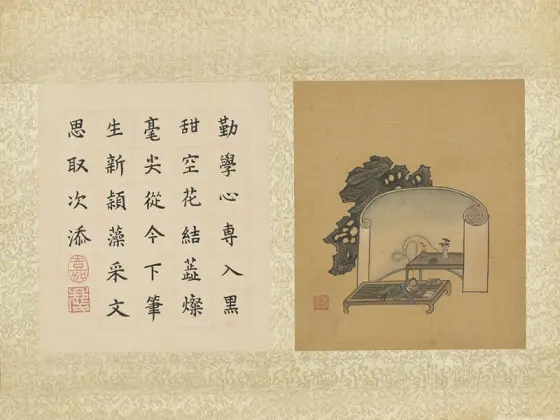 勤學心専入黑
甜空花結蕋燦
毫尖從今下筆
生新頴藻采文
思取次添